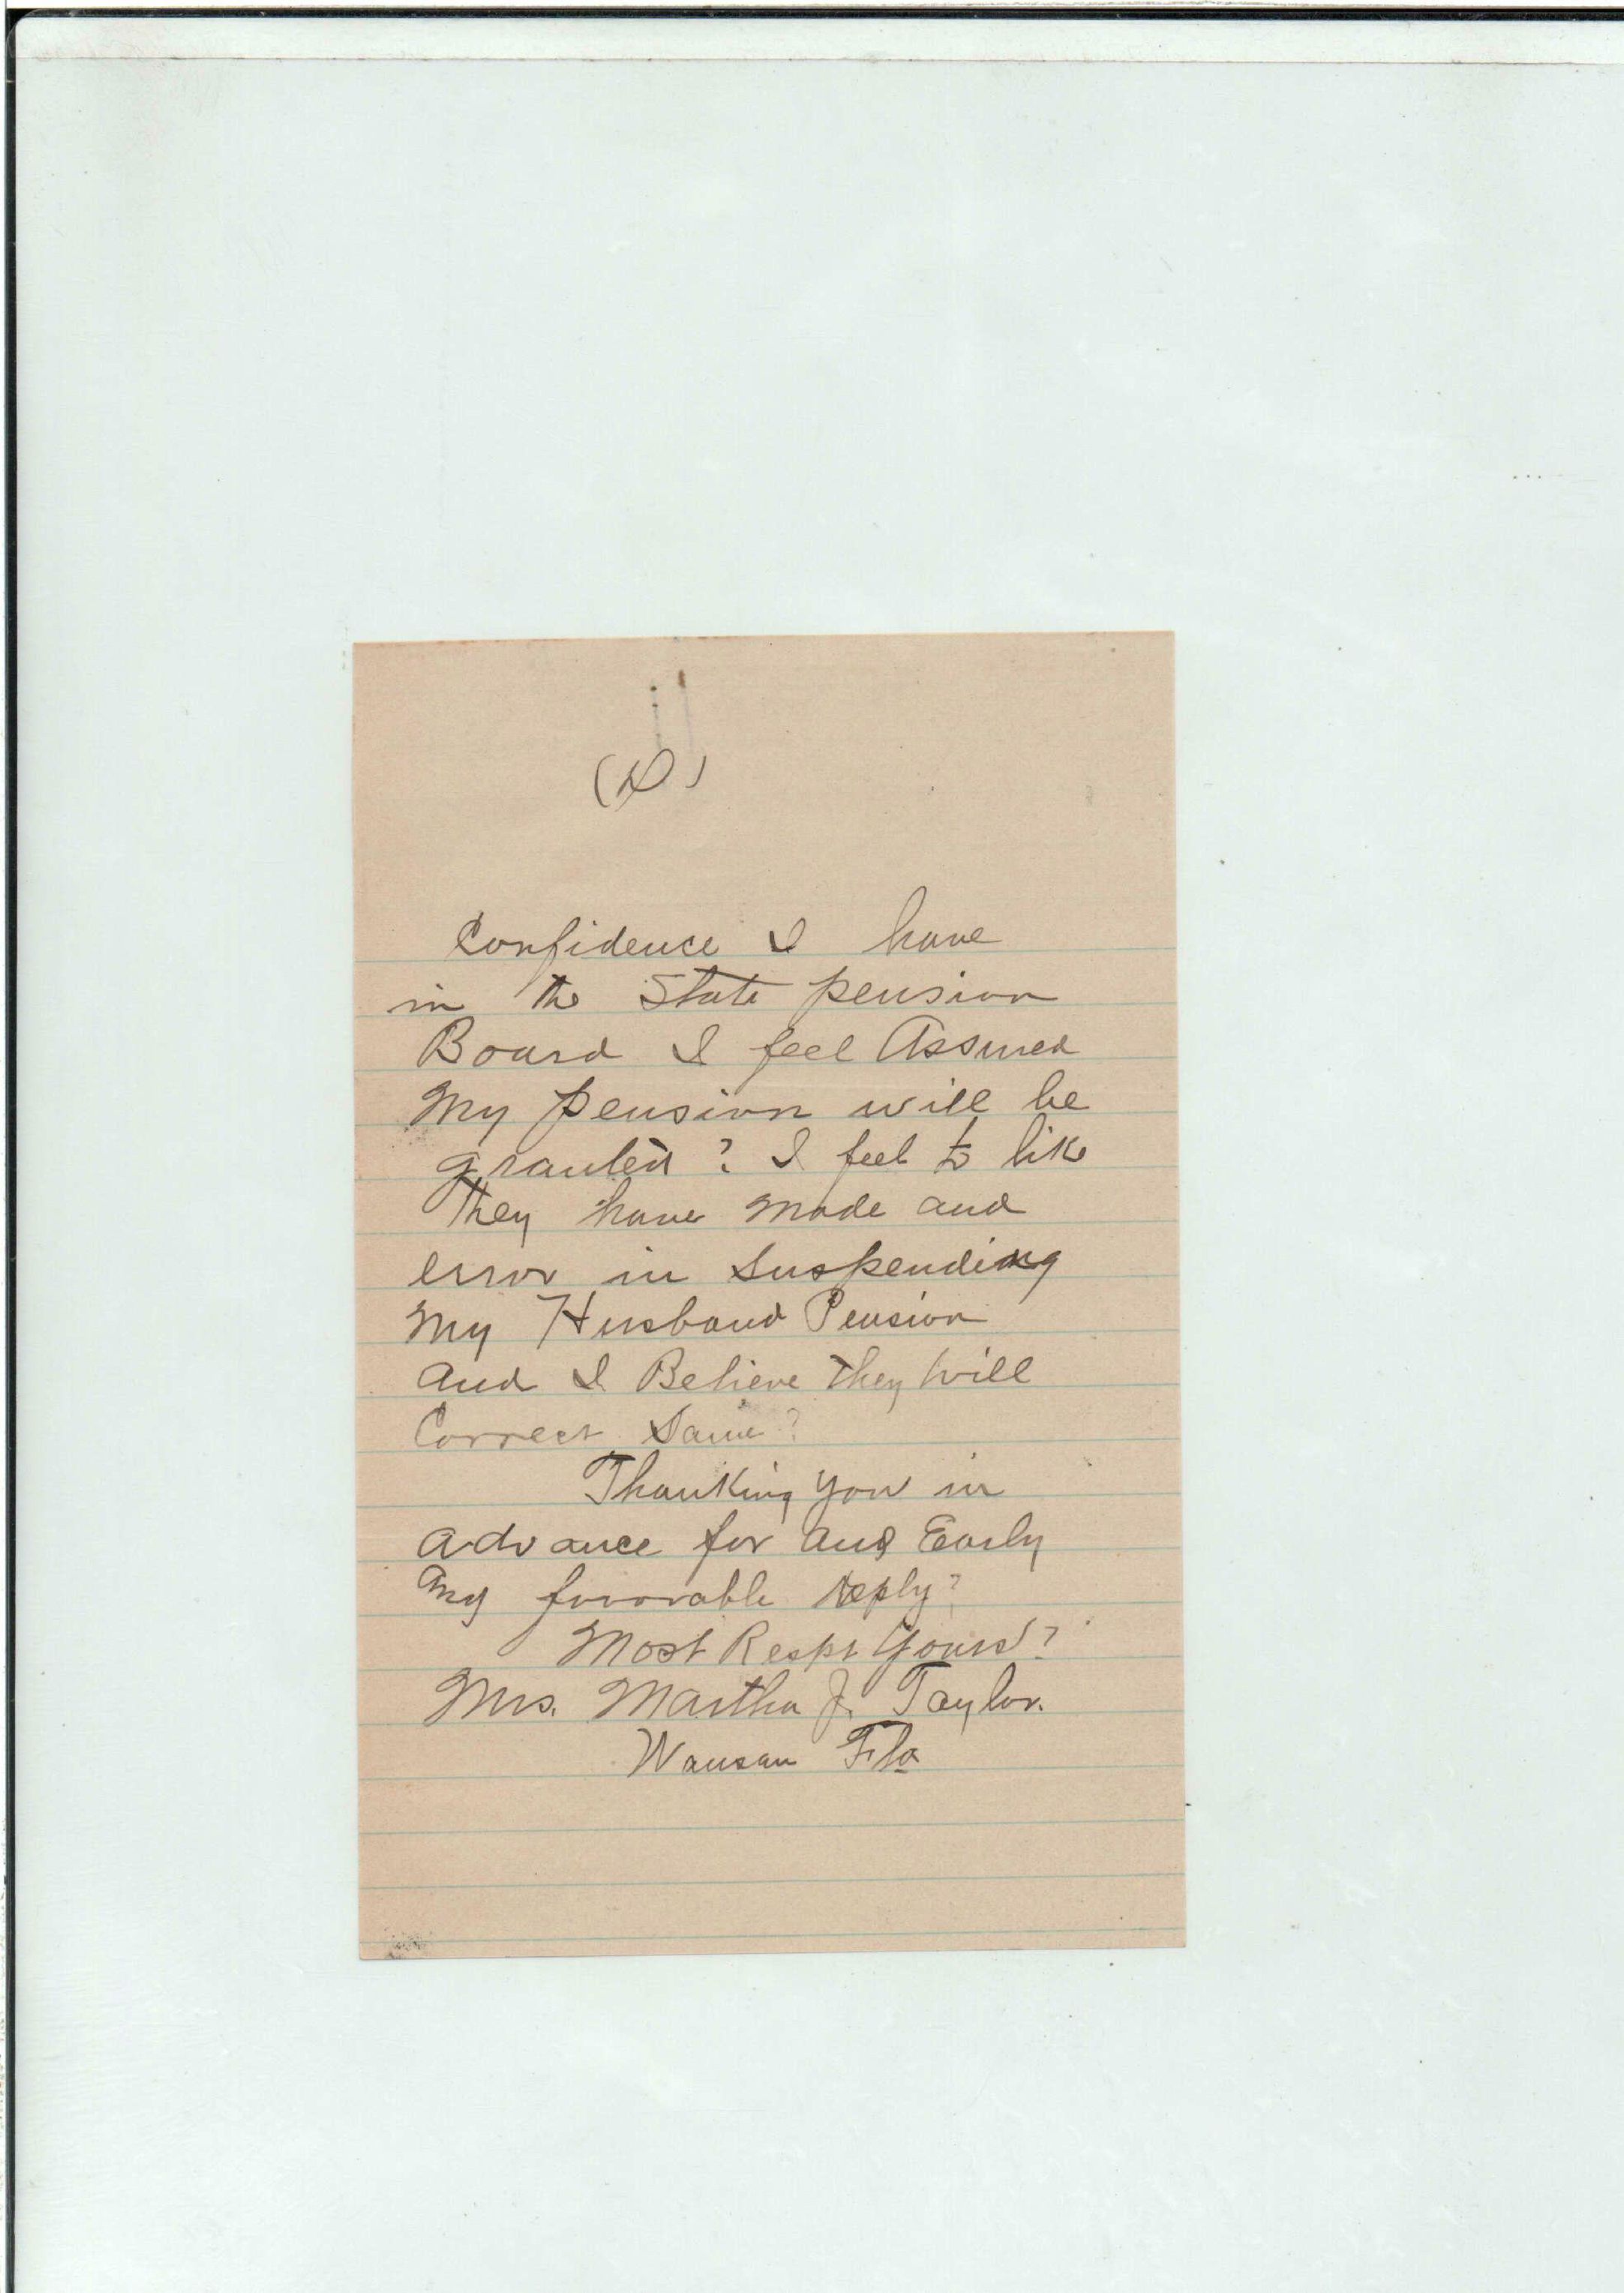 Confidence I have
in the State pension
Board I feel Assured
My pension will be
granted? I feel to like
They have made and
error in suspending
My Husband Pension
and I Believe they will
Correct Same?
Thanking you in
advance for and Early
and favorable reply?
Most Respt Yours?
Mrs. Martha J. Taylor.
Wausau Fla